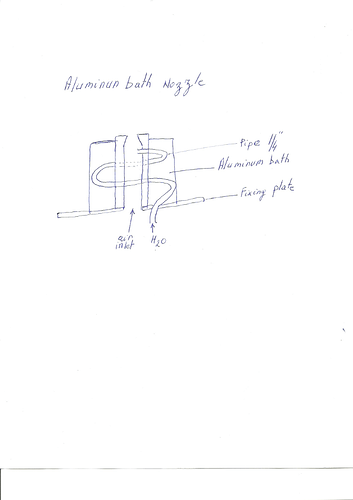 Aluminun bath Nozzle
Pipe 1/4"
Aluminum bath
Fixing plate
air
inlet
H2O